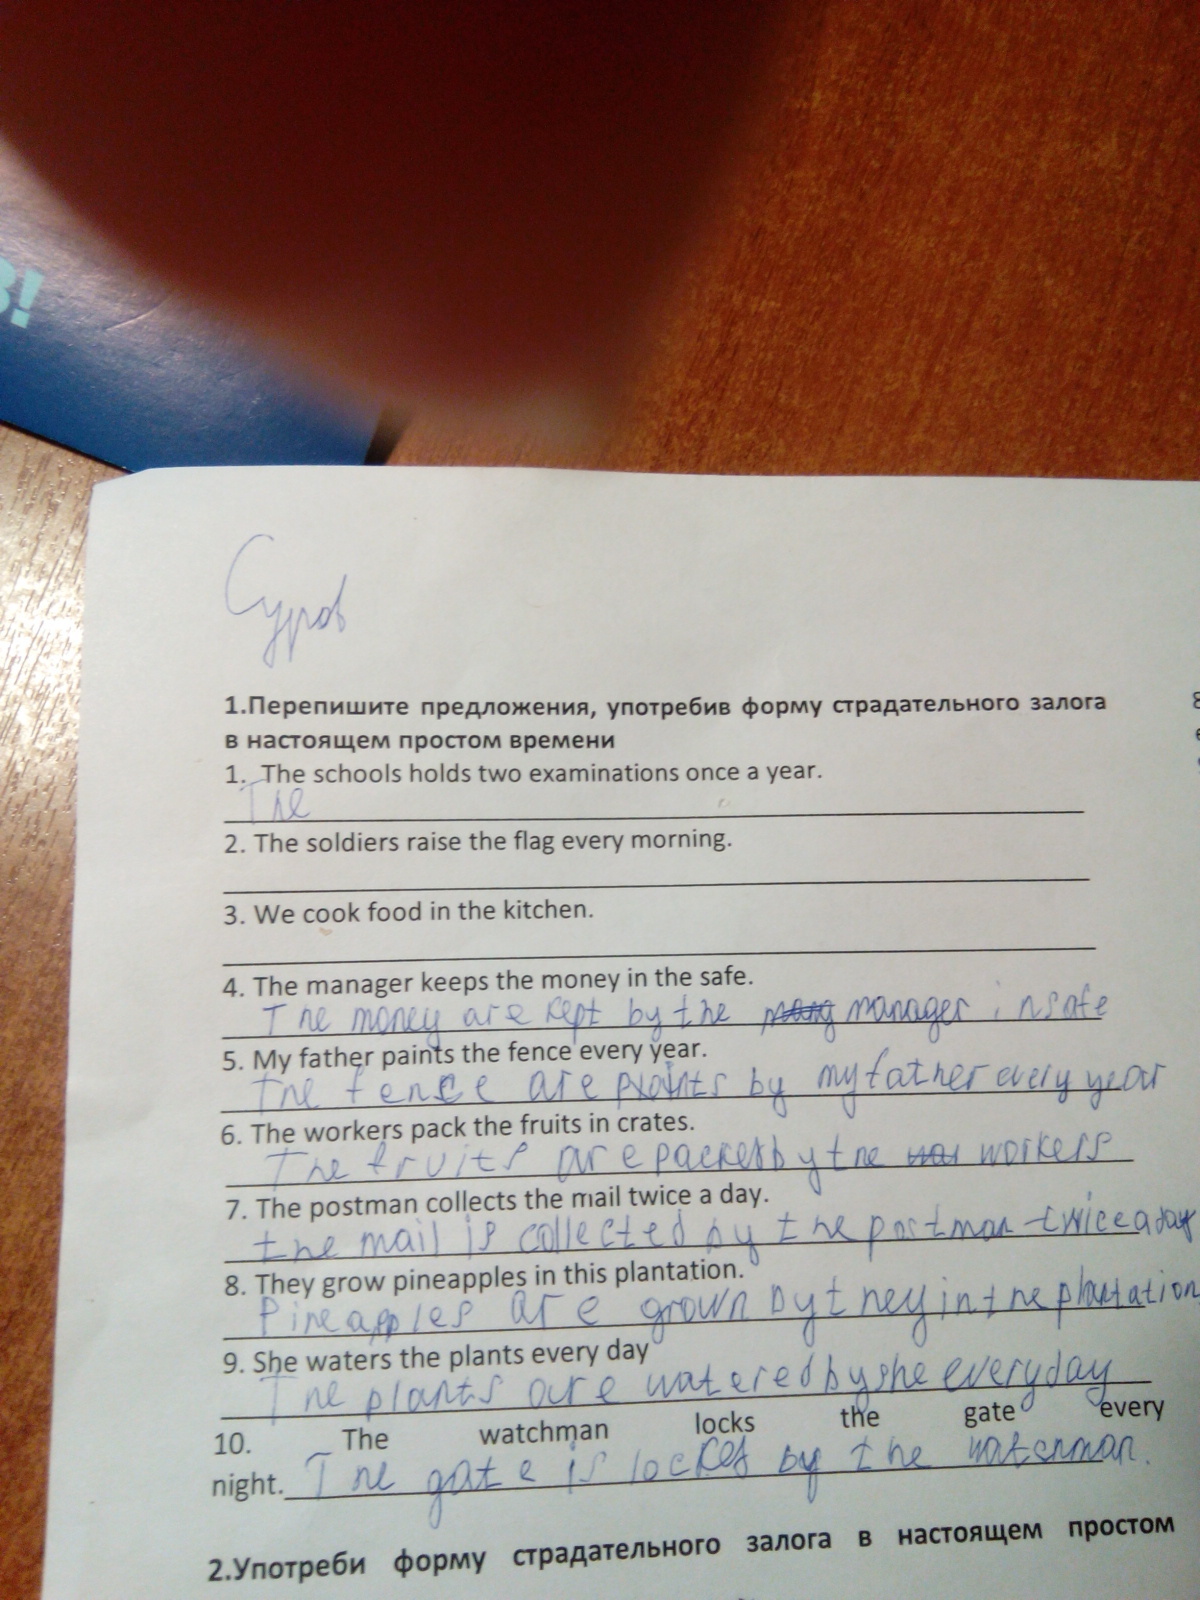 В!
Суров
1.Перепишите предложения, употребив форму страдательного залога
в настоящем простом времени
1. The schools holds two examinations once a year.
The
2. The soldiers raise the flag every morning.
3. We cook food in the kitchen.
4. The manager keeps the money in the safe.
The money are kept by the manager in safe
5. My father paints the fence every year.
The fence are paints by my father every year
6. The workers pack the fruits in crates.
The fruits are packed by the workers
7. The postman collects the mail twice a day.
the mail is collected by the postman twice a day
8. They grow pineapples in this plantation.
Pineapples are grown by they in the plantation
9. She waters the plants every day
The plants are watered by she every day
10. The watchman locks the gate every
night. The gate is locked by the watchman.
2.Употреби форму страдательного залога в настоящем простом